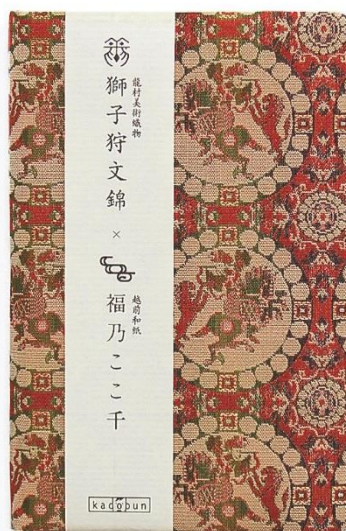 龍村美術織物
獅子狩文錦
×
越前和紙
福乃ここ千
kadobun